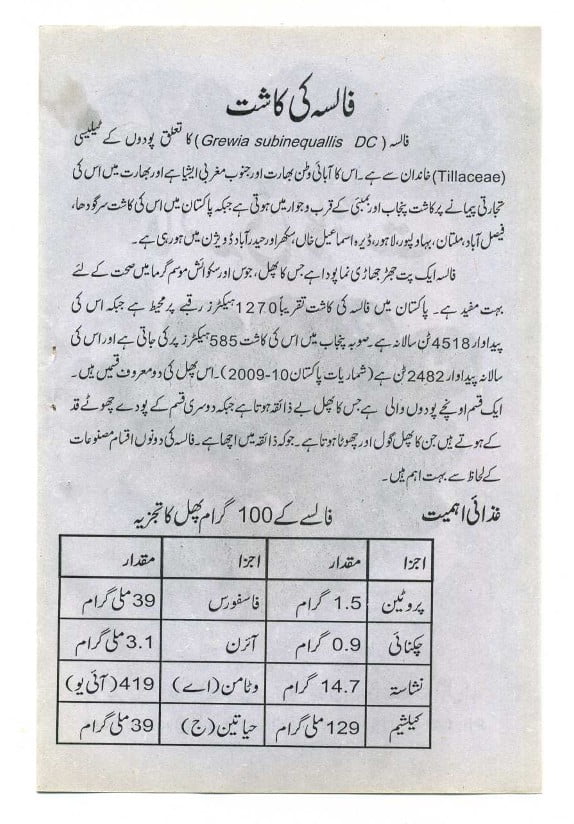 فالسہ کی کاشت
فالسہ (Grewia subinequallis DC) کا تعلق پودوں کے ٹیلیسی
(Tillaceae) خاندان سے ہے۔ اس کا آبائی وطن بھارت اور جنوب مغربی ایشیا ہے اور بھارت میں اس کی
تجارتی پیمانے پر کاشت پنجاب اور بمبئی کے قرب و جوار میں ہوتی ہے جبکہ پاکستان میں اس کی کاشت سرگودھا،
فیصل آباد، ملتان، بہاولپور، لاہور، ڈیرہ اسماعیل خاں، سکھر اور حیدر آباد ڈویژن میں ہو رہی ہے۔
فالسہ ایک پت جھڑ جھاڑی نما پودا ہے جس کا پھل، جوس اور سکوائش موسم گرما میں صحت کے لئے
بہت مفید ہے۔ پاکستان میں فالسہ کی کاشت تقریباً 1270 ہیکٹرز رقبے پر محیط ہے جبکہ اس کی
پیداوار 4518 ٹن سالانہ ہے۔ صوبہ پنجاب میں اس کی کاشت 585 ہیکٹرز پر کی جاتی ہے اور اس کی
سالانہ پیداوار 2482 ٹن ہے (شماریات پاکستان 10-2009)۔ اس پھل کی دو معروف قسمیں ہیں۔
ایک قسم اونچے پودوں والی ہے جس کا پھل بے ذائقہ ہوتا ہے جبکہ دوسری قسم کے پودے چھوٹے قد
کے ہوتے ہیں جن کا پھل گول اور چھوٹا ہوتا ہے۔ جو کہ ذائقہ میں اچھا ہے۔ فالسہ کی دونوں اقسام مصنوعات
کے لحاظ سے بہت اہم ہیں۔
غذائی اہمیت فالسے کے 100 گرام پھل کا تجزیہ
اجزا مقدار اجزا مقدار
پروٹین 1.5 گرام فاسفورس 39 ملی گرام
چکنائی 0.9 گرام آئرن 3.1 ملی گرام
نشاستہ 14.7 گرام وٹامن (اے) 419 (آئی یو)
کیلشیم 129 ملی گرام حیاتین (ج) 39 ملی گرام